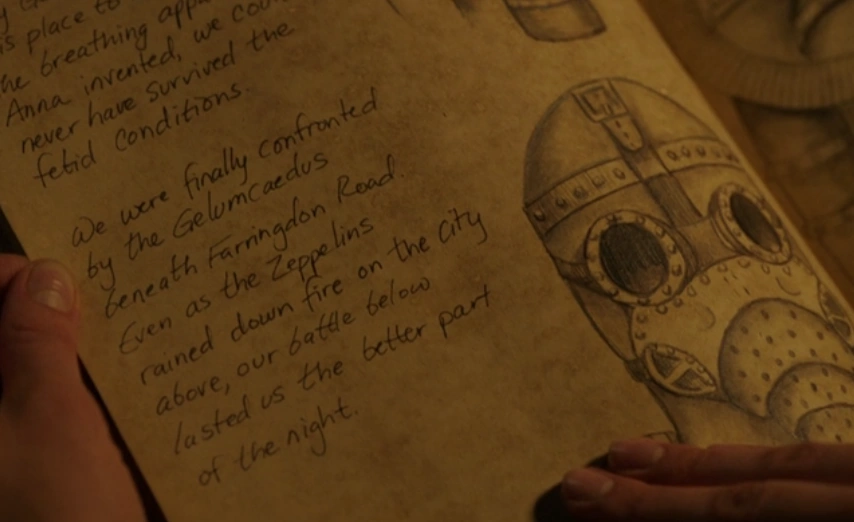 is place to
the breathing
Anna invented, we
never have survived the
fetid conditions.
We were finally confronted
by the Gelumcaedus
beneath Farringdon Road.
Even as the Zeppelins
rained down fire on the city
above, our battle below
lasted us the better part
of the night.